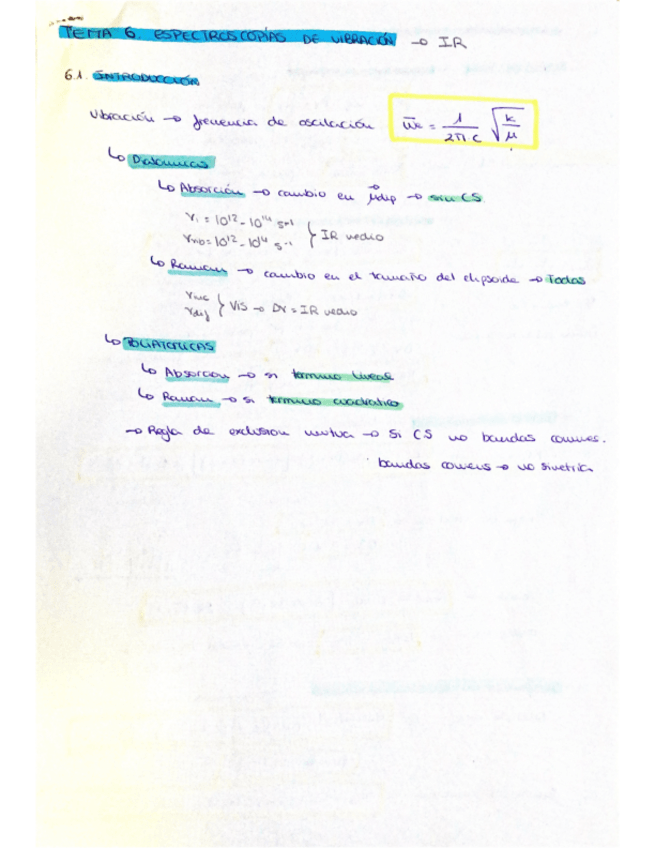 TEMA 6. ESPECTROSCOPÍAS DE VIBRACIÓN → IR
6.1. INTRODUCCIÓN
Vibración → frecuencia de oscilación ω̄e = 1 / 2πc √k/μ
↳ Diatómicas
↳ Absorción → cambio en μ⃗dip → sin CS
νi = 10¹² - 10¹⁴ s⁻¹
νvib = 10¹² - 10¹⁴ s⁻¹ } IR medio
↳ Raman → cambio en el tamaño del elipsoide → Todas
νinc
νdif } VIS → Δν = IR medio
↳ POLIATÓMICAS
↳ Absorción → si término lineal
↳ Raman → si término cuadrático
→ Regla de exclusión mutua → Si CS no bandas comunes.
bandas comens → no simetría